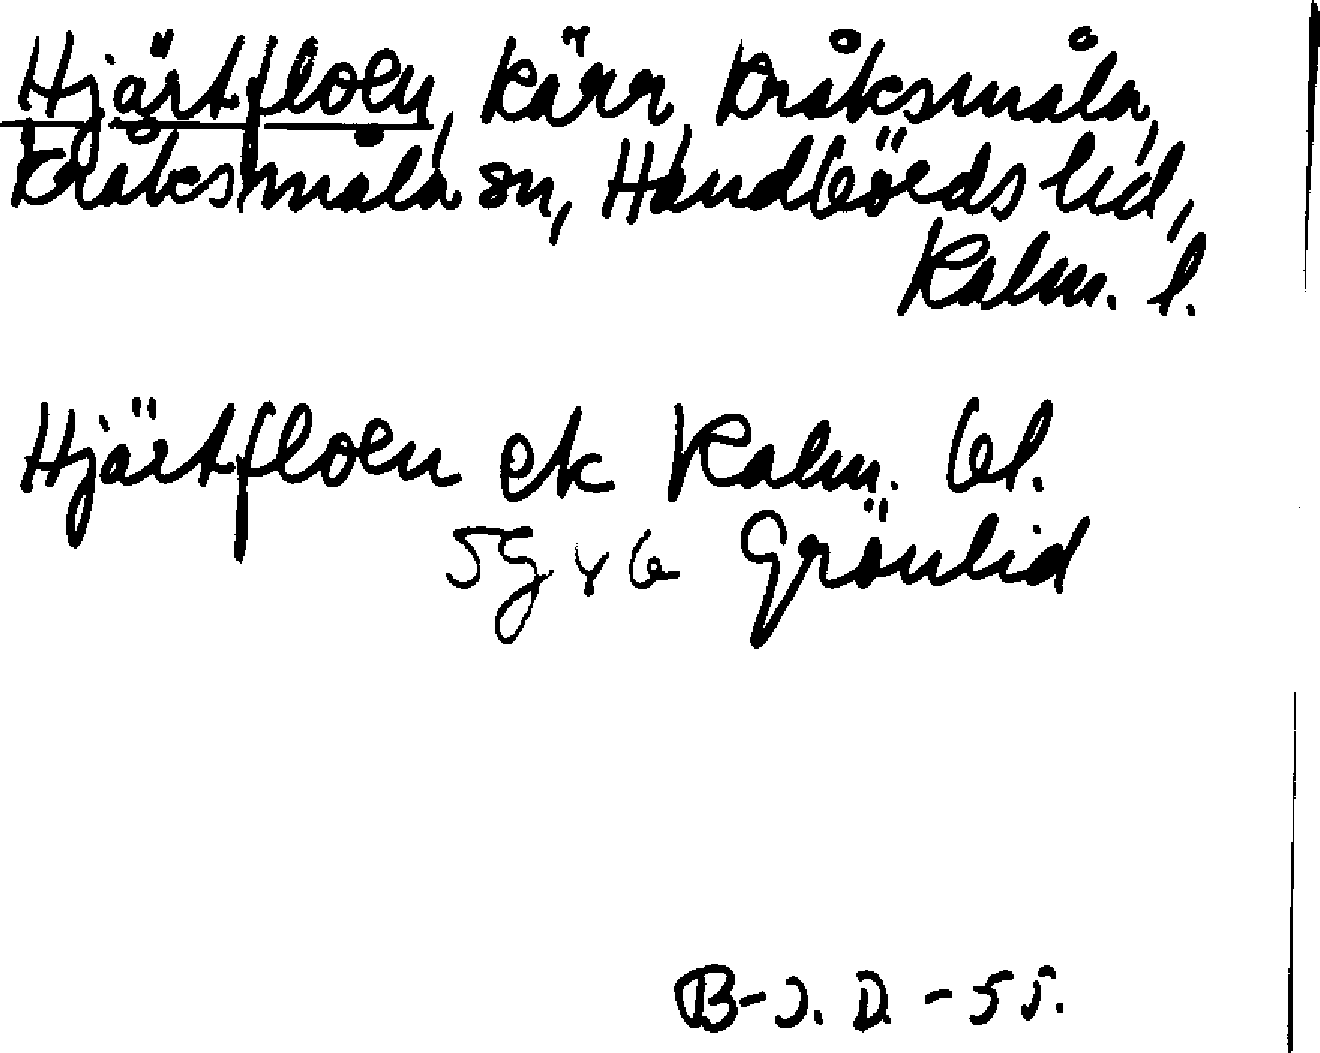 Hjärtfloen, kärr, Kråksmåla,
Kråksmåla sn, Handbörds hd,
Kalm. l.
Hjärtfloen ek Kalm. bl.
5G y b Grönlid
B-J. D. - 55.